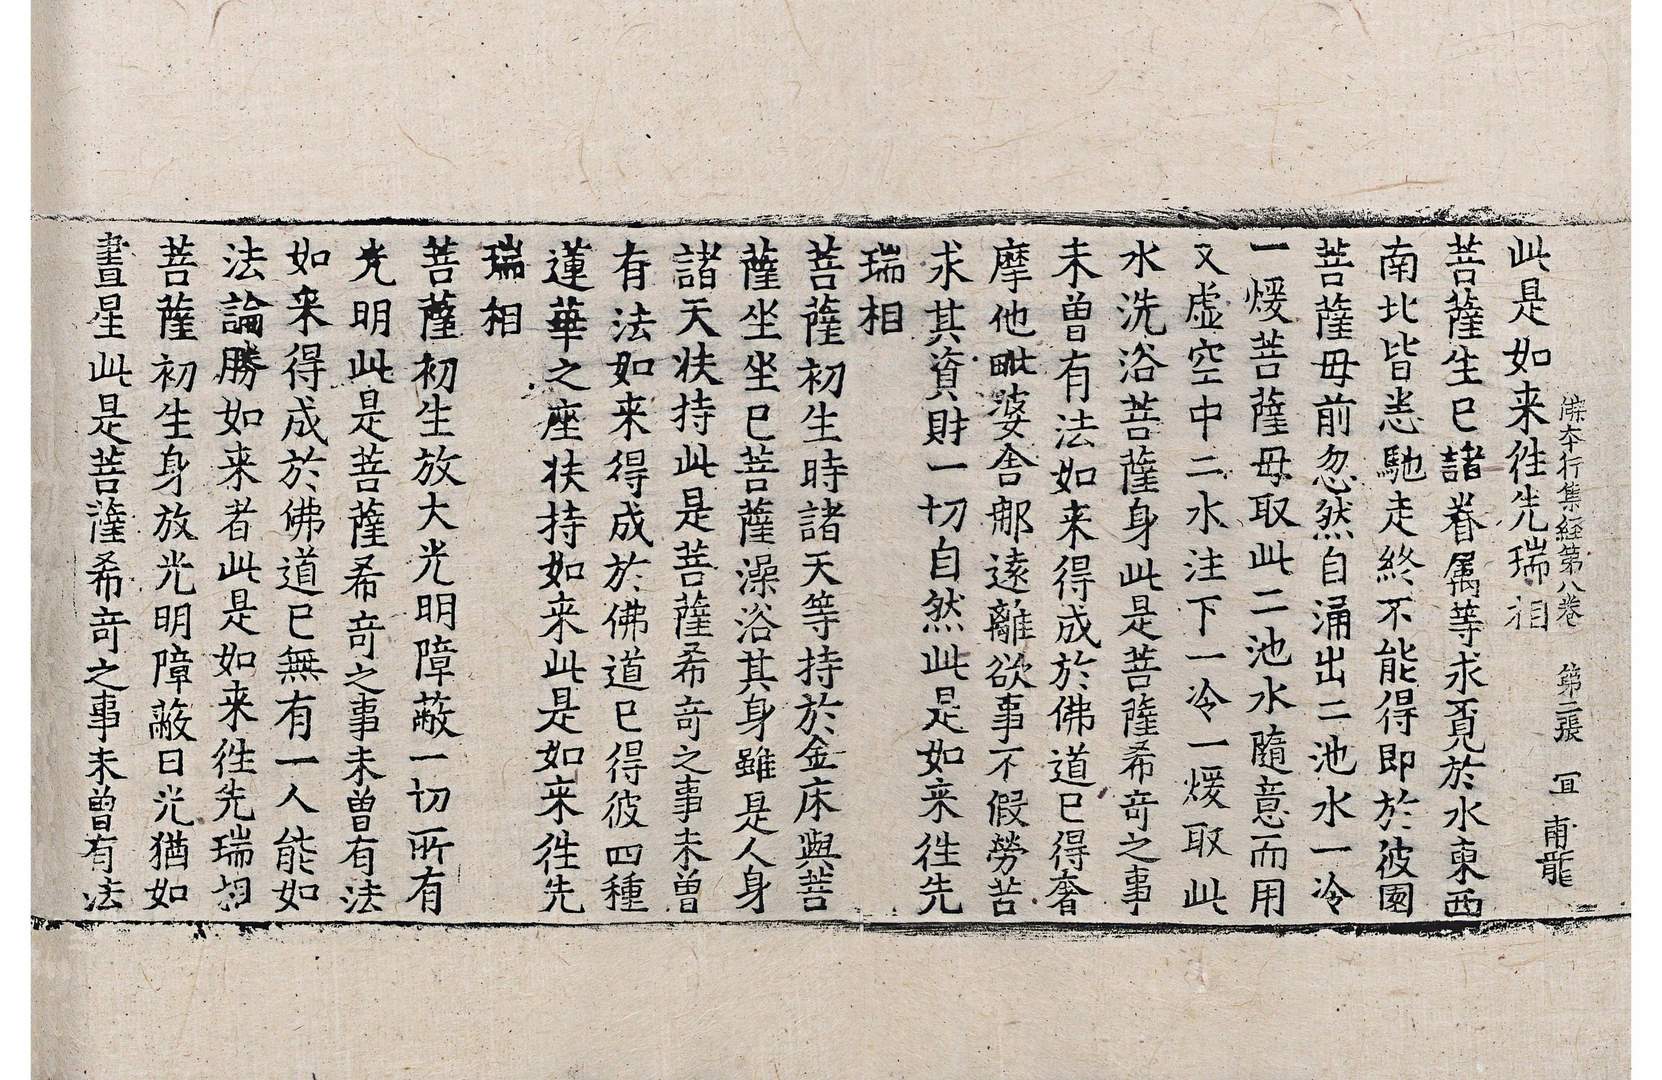 此是如来徃先瑞相
佛本行集經第八卷 第二張 冝 甫龍
菩薩生已諸眷属等求覔於水東西
南北皆悉馳走終不能得即於彼園
菩薩母前忽然自涌出二池水一冷
一煖菩薩母取此二池水隨意而用
又虚空中二水注下一冷一煖取此
水洗浴菩薩身此是菩薩希竒之事
未曽有法如来得成於佛道已得奢
摩他毗婆舎那遠離欲事不假勞苦
求其資財一切自然此是如来徃先
瑞相
菩薩初生時諸天等持於金床與菩
薩坐坐已菩薩澡浴其身雖是人身
諸天扶持此是菩薩希竒之事未曽
有法如来得成於佛道已得彼四種
蓮華之座扶持如来此是如来徃先
瑞相
菩薩初生放大光明障蔽一切所有
光明此是菩薩希竒之事未曽有法
如来得成於佛道已無有一人能如
法論勝如来者此是如来徃先瑞相
菩薩初生身放光明障蔽日光猶如
晝星此是菩薩希竒之事未曽有法